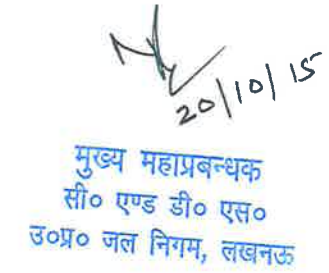 20/10/15
मुख्य महाप्रबन्धक
सी० एण्ड डी० एस०
उ०प्र० जल निगम, लखनऊ